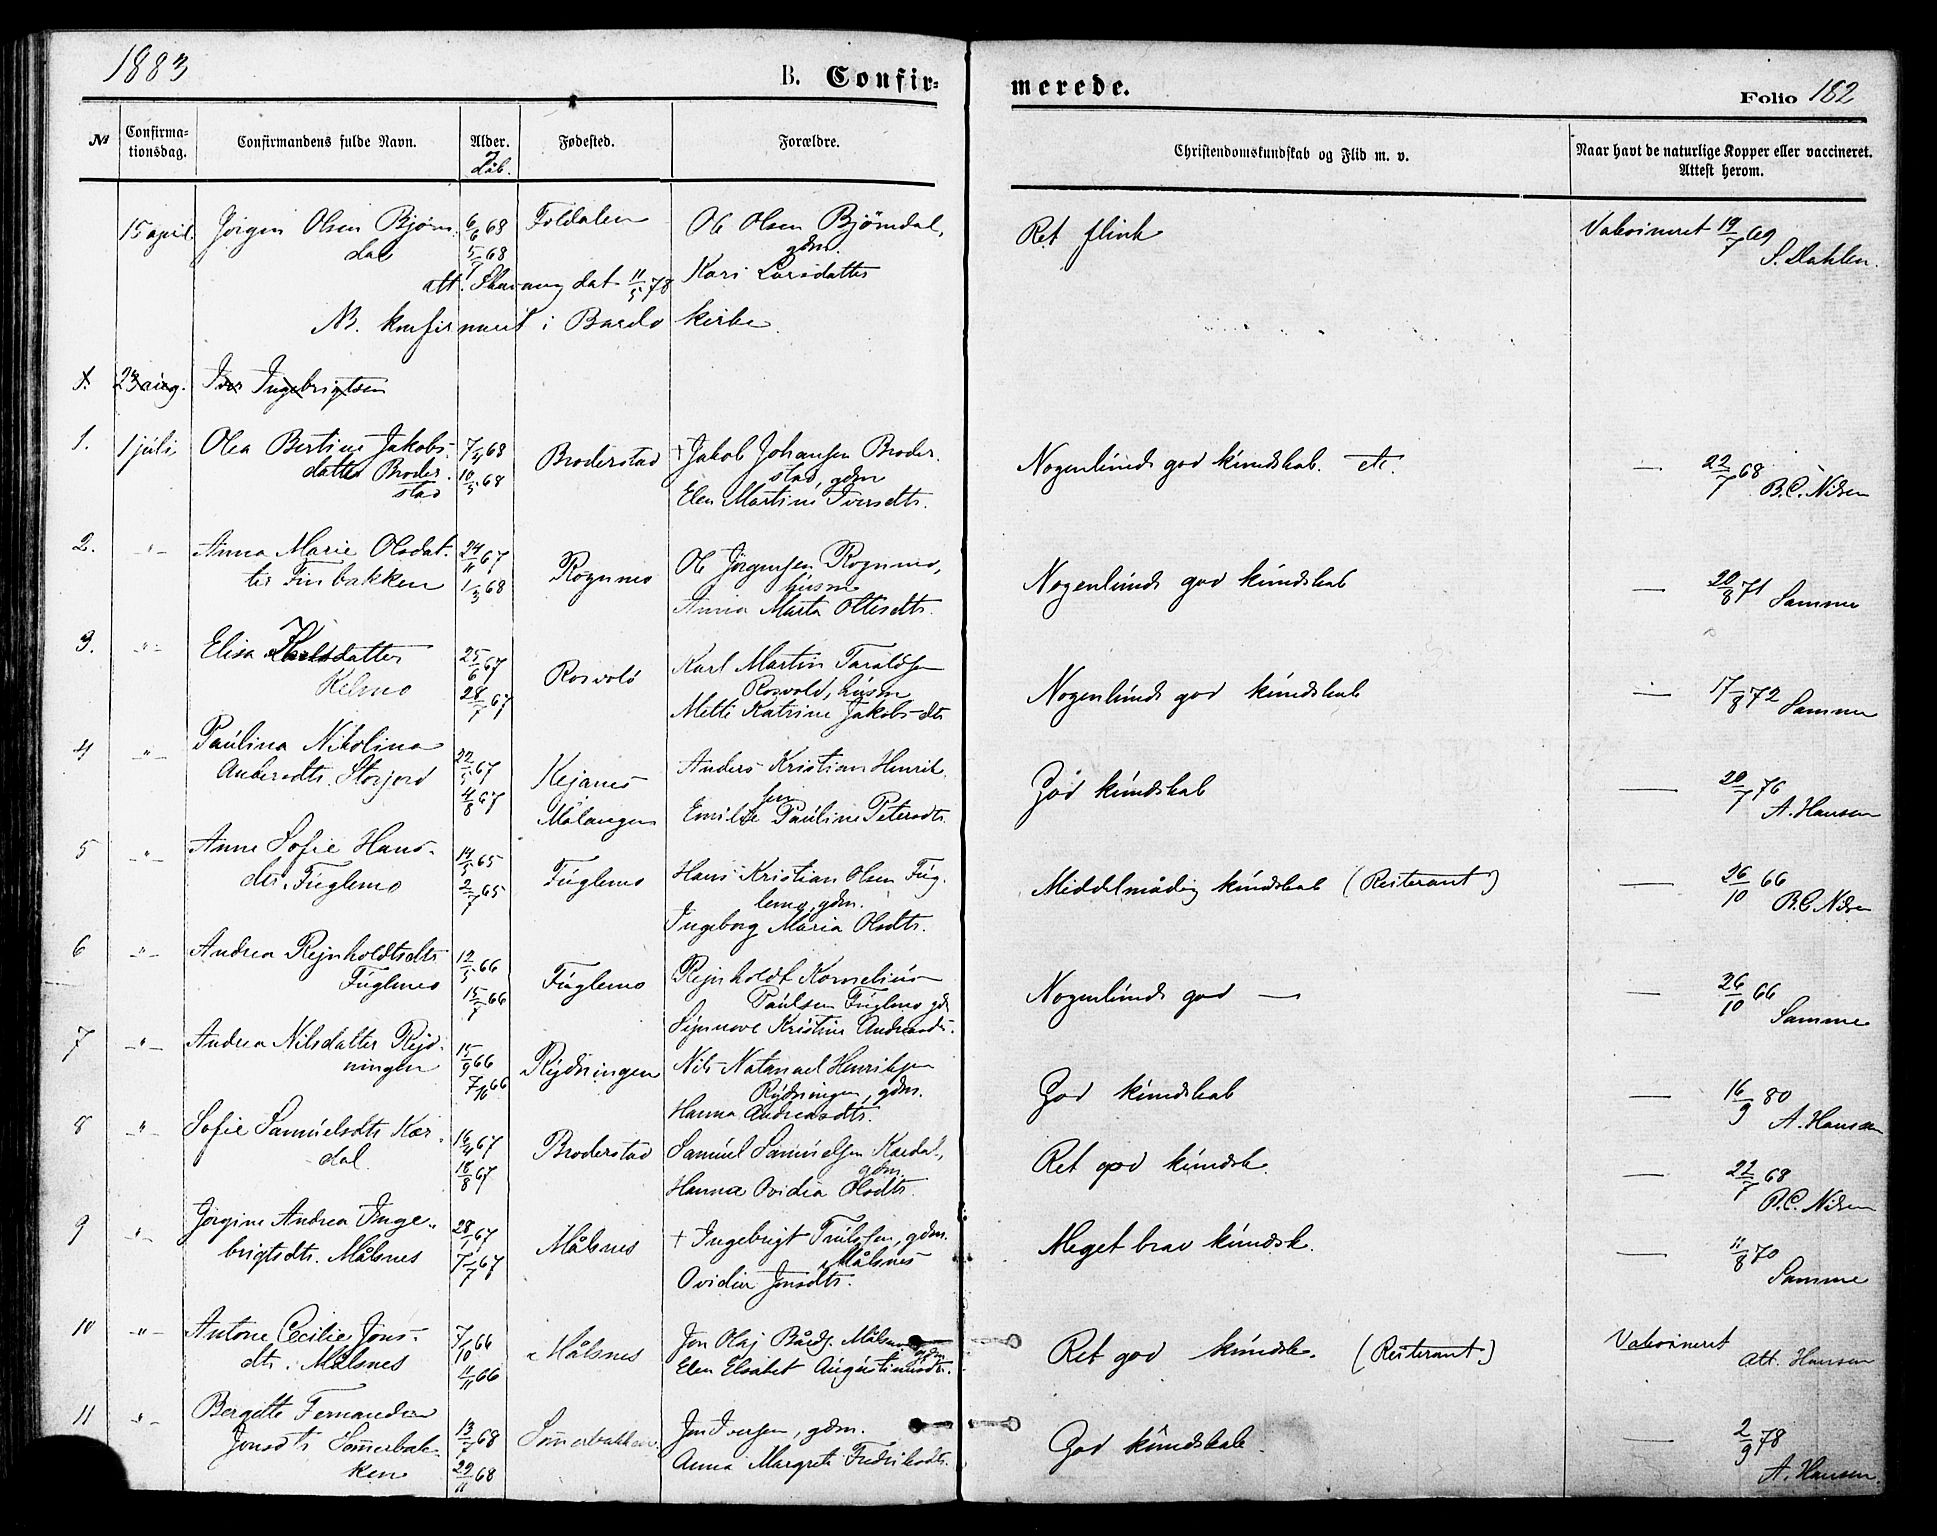 1883
B. Confir=
merede.
Folio 182
№
Confirma=
tionsdag.
Confirmandens fulde Navn.
Alder.
Dåb.
Fødested.
Forældre.
Christendomskundskab og Flid m. v.
Naar havt de naturlige Kopper eller vaccineret.
Attest herom.
15 april Jörgin Olsen Bjørn- 6/6 68 Foldalen Ole Olsen Bjömdal, Ret flink Vaksineret 19/7 69
dal 5/7 68 gdm. S. Dahlen.
att. dat 11/5 78 Kari Larsdatter
NB. konfirmeret i Bardo kirke.
1. 23 aug. Iver Ingebrigtsen
1. 1 juli Olea Bertine Jakobs- 7/4 68 Broderstad † Jakob Johansen Broder- Nogenlunde god kundskab. etc. — 22/7 68
datter Broder- 10/5 68 stad, gdm B. C. Nilsen
stad Elen Martine Iversdtr.
2. -"- Anna Marie Olsdat- 24/11 67 Rognmo Ole Jörgensen Rognmo, Nogenlunde god kundskab — 20/8 71 Samme
ter Finbakken 1/3 68 husm
Anna Marta Ottesdtr.
3. -"- Elisa Karlsdatter 25/6 67 Rosvold Karl Martin Taraldsen Nogenlunde god kundskab — 17/8 72 Samme
Kelmo 28/7 67 Rosvold, husm
Mette Katrine Jakobsdtr
4 -"- Paulina Nikolina 22/5 67 Anders Kristian Henrik- God kundskab — 20/7 76
Andersdtr. Storjord 4/8 67 Målangen sen A. Hansen
Emilie Pauline Petersdtr.
5 -"- Anne Sofie Hans- 14/5 65 Fuglemo Hans Kristian Olsen Fug- Middelmådig kundskab (Resterant) — 26/10 66
dtr. Fuglemo 2/7 65 lemo, gdm. B. C. Nilsen
Ingeborg Maria Olsdtr.
6 -"- Andrea Rejnholdtsdtr 12/5 66 Fuglemo Rejnholdt Kornelius Nogenlunde god — — 26/10 66
Fuglemo 15/7 66 Paulsen Fuglemo gdm Samme
Synnove Kristine Andreasdtr.
7 -"- Andrea Nilsdatter Rejd- 15/9 66 Rejdningen Nils Natanael Henriksen God kundskab — 16/9 80
ningen 7/10 66 Rydningen, gdm. A. Hansen
Hanna Andreasdtr.
8 -"- Sofie Samuelsdtr Kar- 16/4 67 Broderstad Samuel Samuelsen Kardal, Ret god kundsk. — 22/7 68
dal. 18/8 67 gdm B. C. Nilsen
Hanna Ovidia Olsdtr.
9 -"- Jörgine Andrea Inge- 28/1 67 Målsnes † Ingebrigt Trulssen, gdm. Meget brav kundsk. — 11/8 70
brigtsdtr. Målsnes 7/7 67 Målsnes Samme
Ovidia Jonsdtr.
10 -"- Antone Cecilie Jons- 7/10 66 Målsnes Jon Olaj Båeds. Målsnes gdm Ret god kundsk. (Resterant) Vaksineret
dtr. Målsnes 11/11 66 Elen Elsabet Augustinusdtr. att. Hansen
11 -"- Bergitte Fernandine 13/8 68 Sommerbakken Jon Iversen, gdm. God kundskab. — 2/9 78
Jonsdtr Sommerbak- 22/11 68 Anna Margrete Fredriksdtr. A. Hansen.
ken